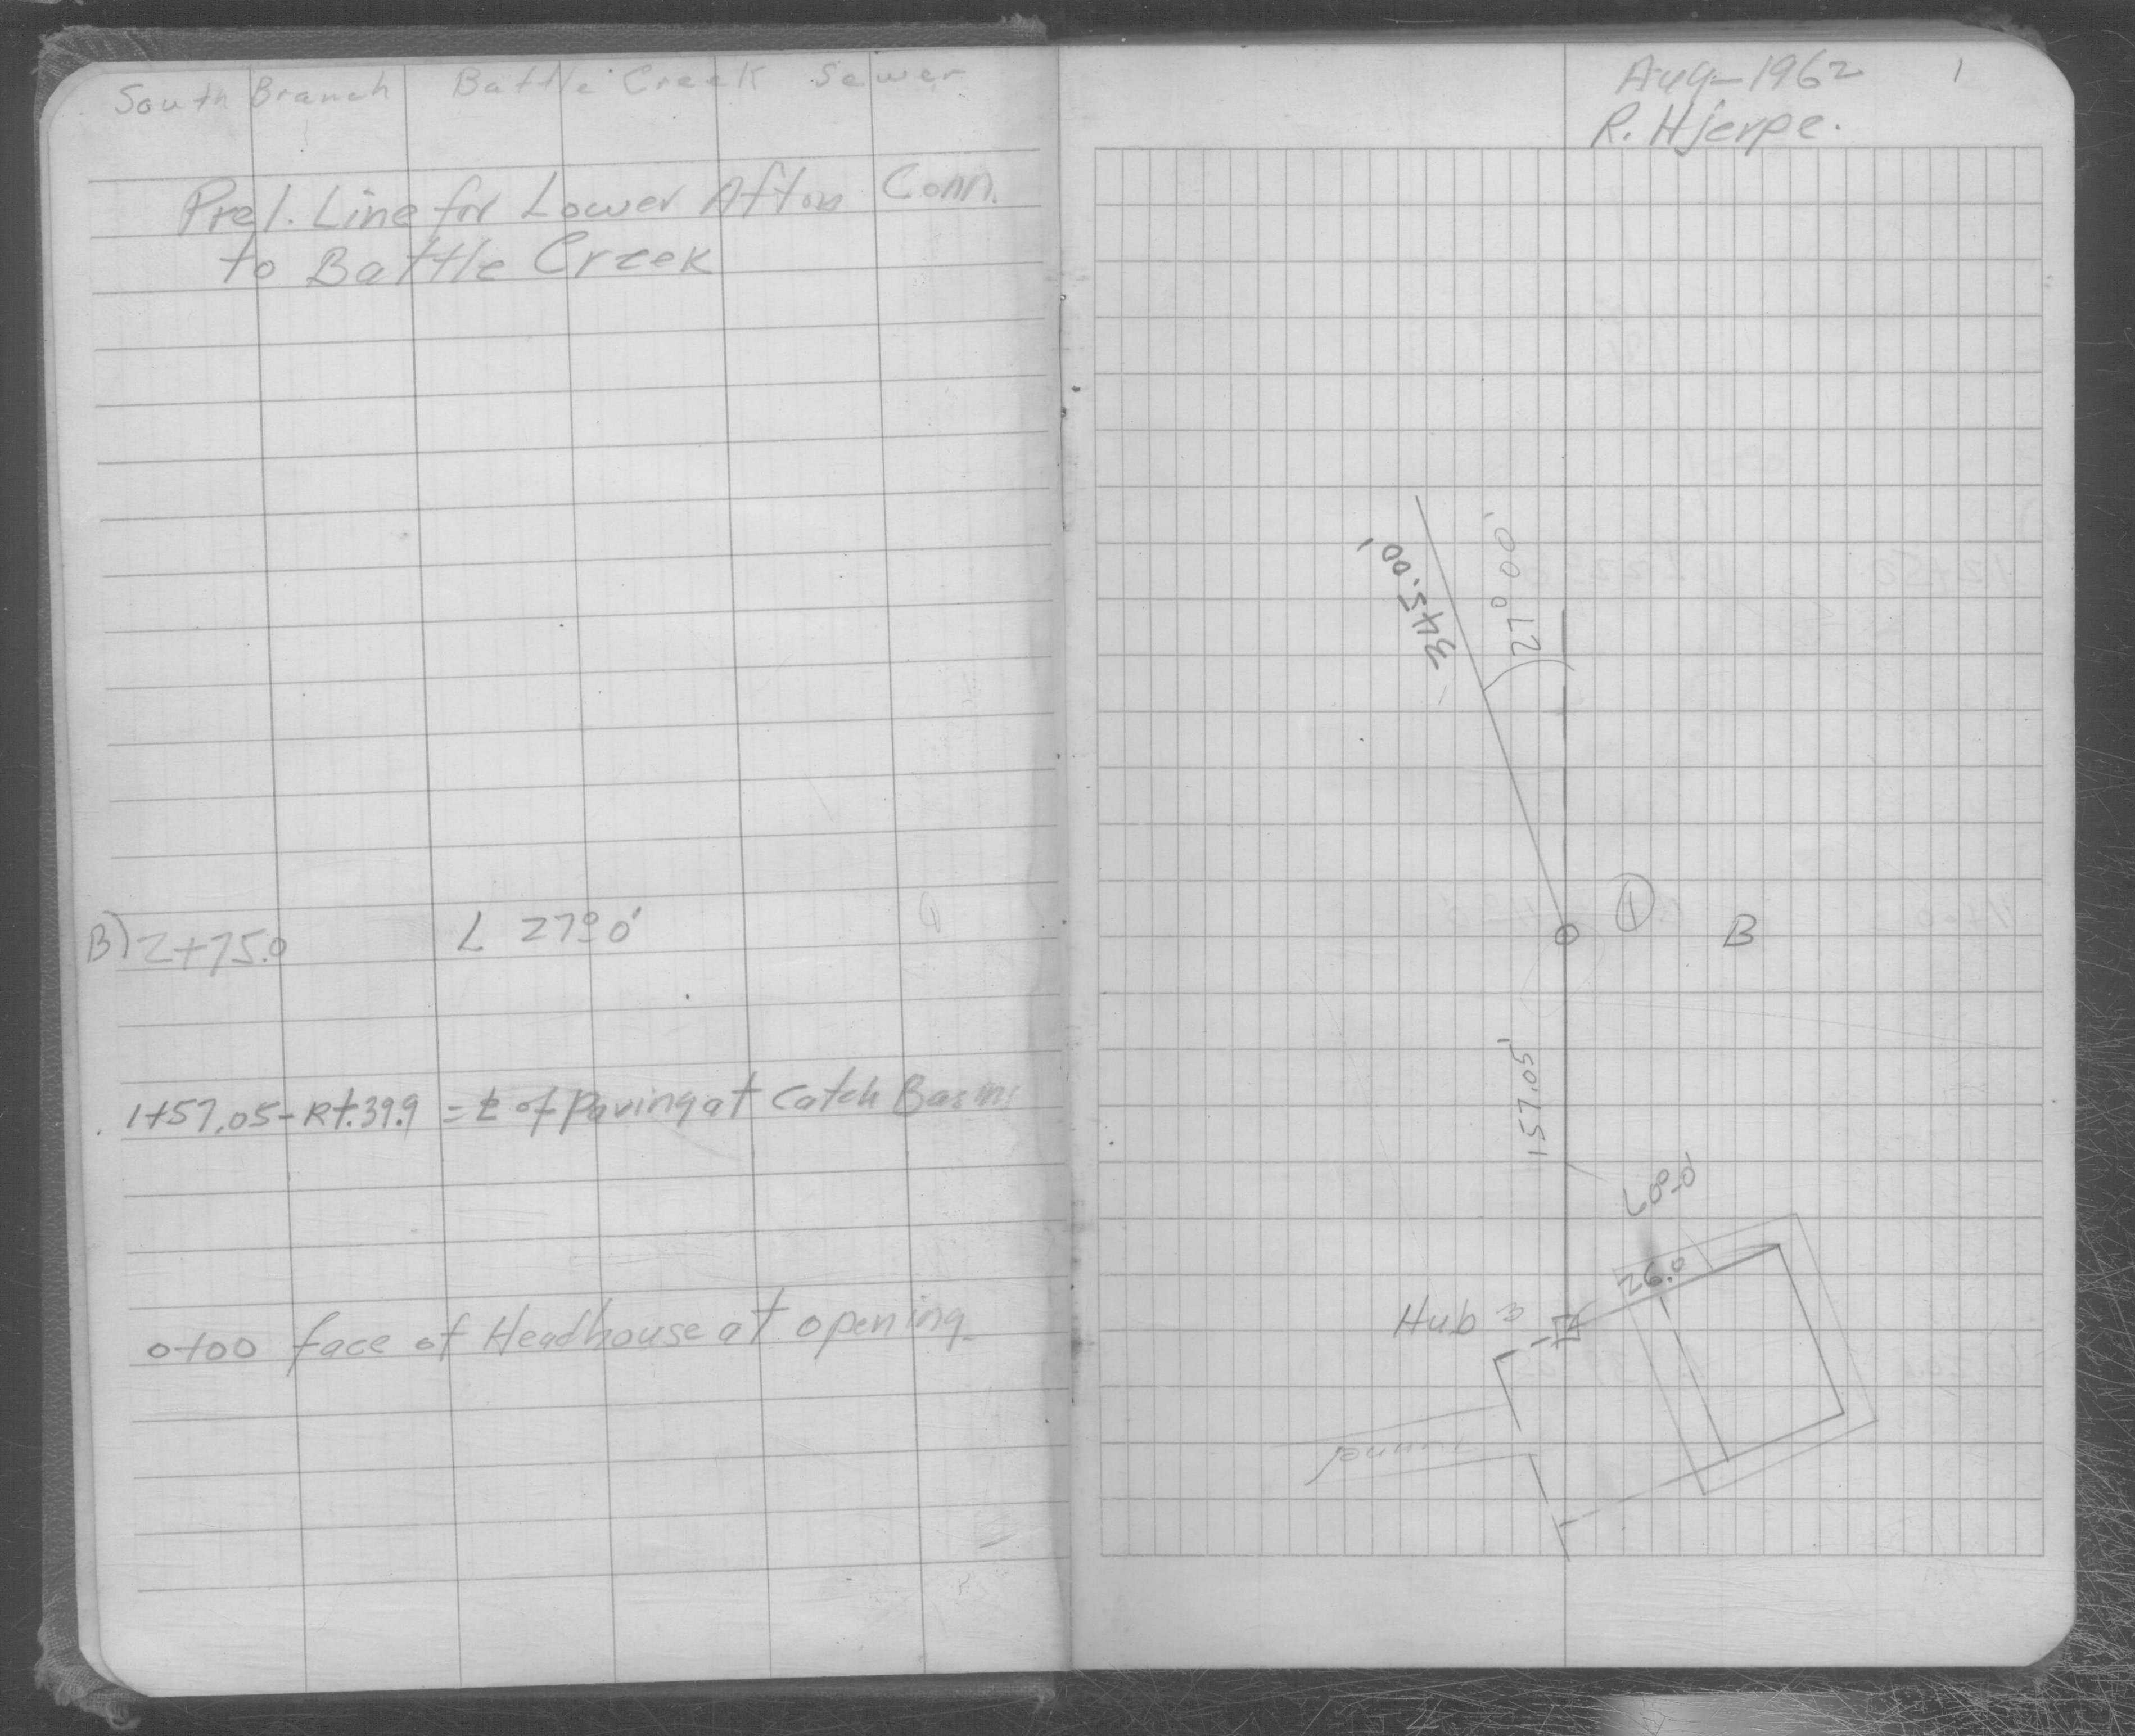 South Branch Battle Creek Sewer
Prel. Line for Lower Afton Conn.
to Battle Creek
B) 2+75.0 L 27°0'
1+57.05-Rt.39.9 = ℄ of Paving at Catch Basins
0+00 face of Headhouse at opening
Aug-1962 1
R. Hjerpe.
345.00'
27°00'
1 B
157.05'
26.0
Hub 3